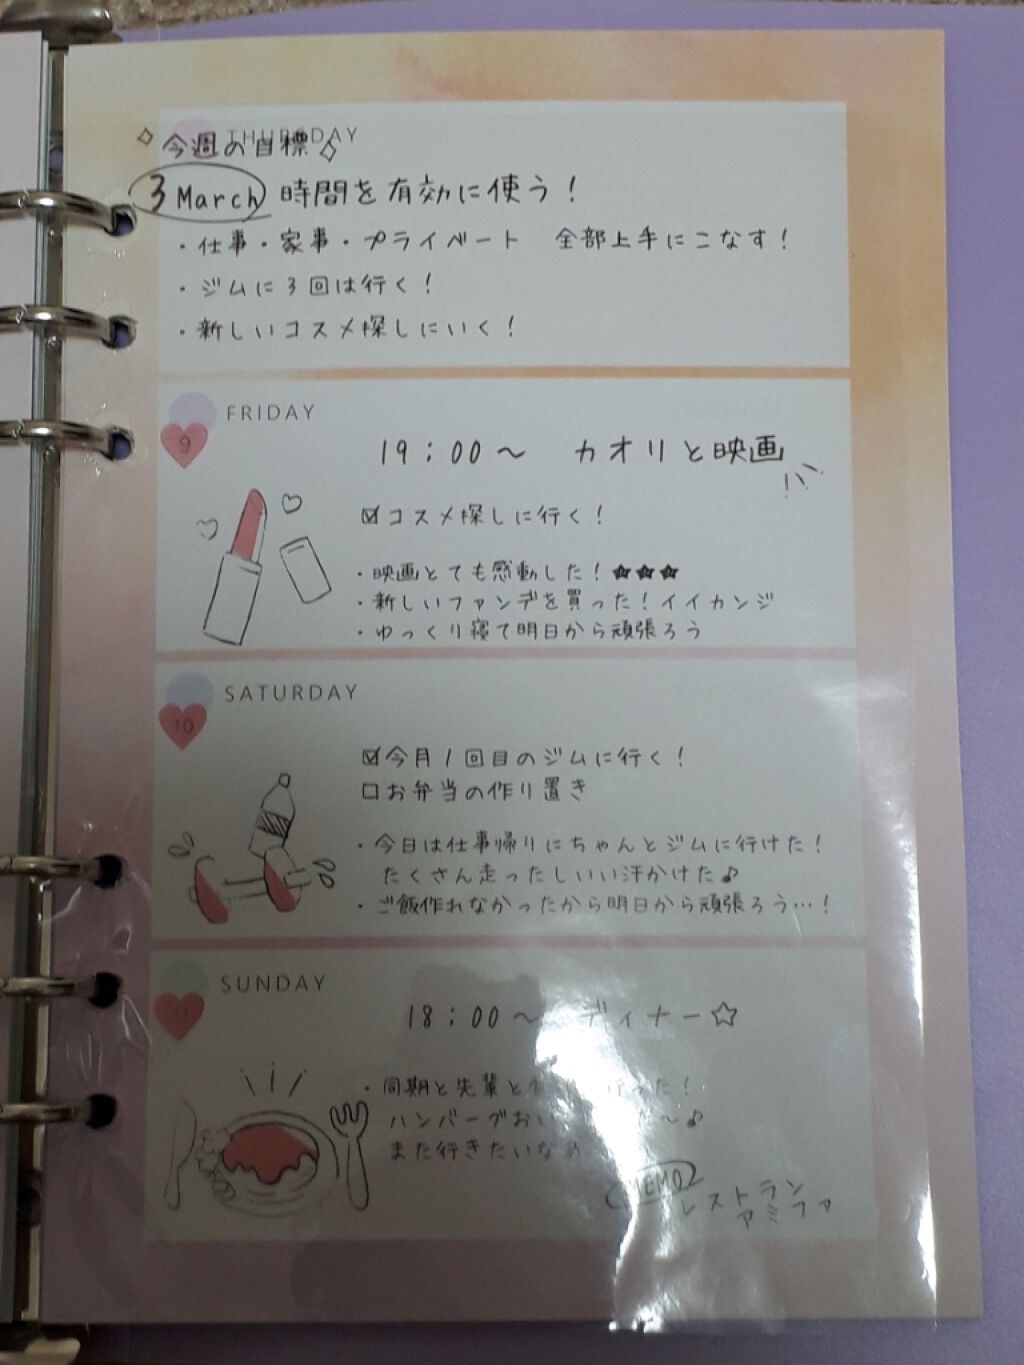 THURSDAY
今週の目標
3 March 時間を有効に使う!
・仕事・家事・プライベート 全部上手にこなす!
・ジムに3回は行く!
・新しいコスメ探しにいく!
FRIDAY
9
19:00〜 カオリと映画
☑コスメ探しに行く!
・映画とても感動した!★★★
・新しいファンデを買った!イイカンジ
・ゆっくり寝て明日から頑張ろう
SATURDAY
10
☑今月1回目のジムに行く!
□お弁当の作り置き
・今日は仕事帰りにちゃんとジムに行けた!
たくさん走ったしいい汗かけた♪
・ご飯作れなかったから明日から頑張ろう…!
SUNDAY
18:00〜 ディナー☆
・同期と先輩と った!
ハンバーグおい 〜♪
また行きたいなぁ
MEMO
レストラン
アミファ